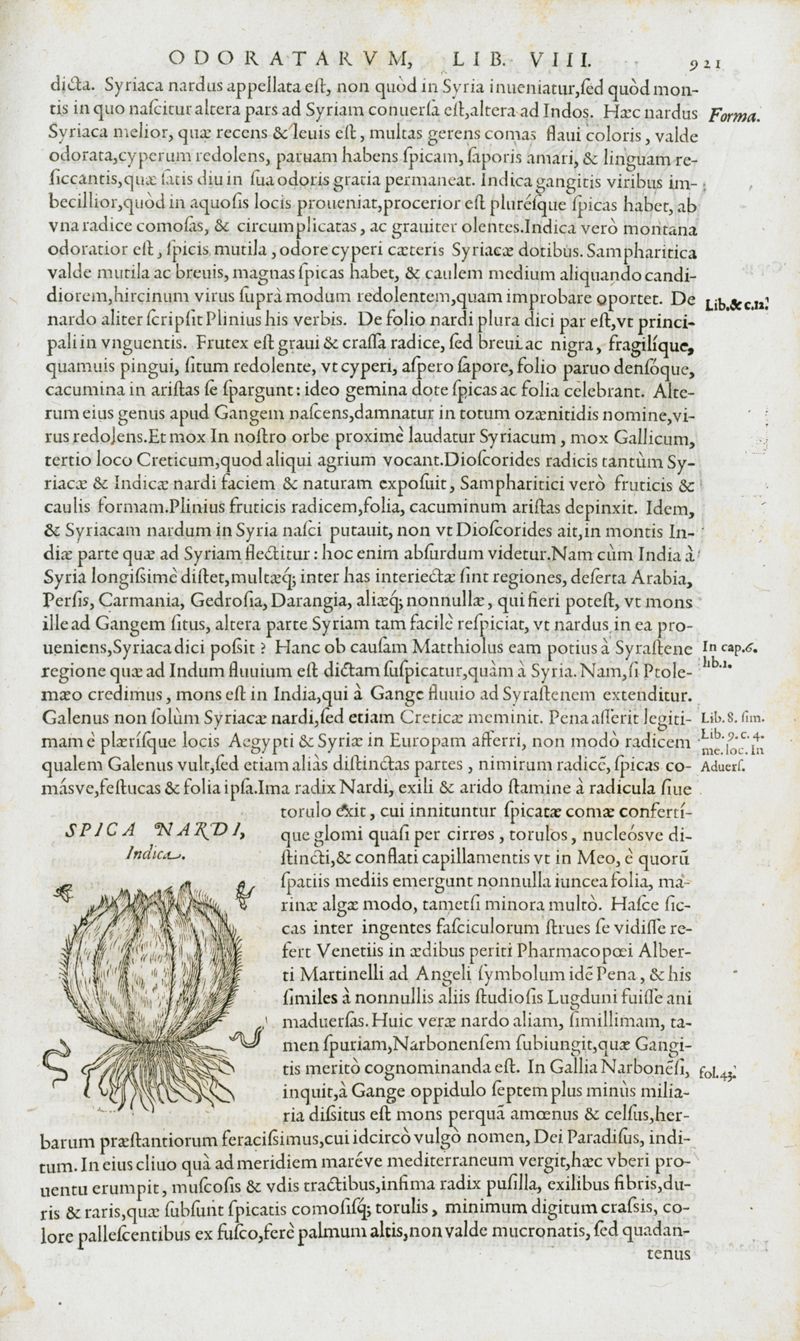 ODORATARVM, LIB. VIII. 921
dicta. Syriaca nardus appellata eſt, non quòd in Syria inueniatur,ſed quòd mon-
tis in quo naſcitur altera pars ad Syriam conuerſa eſt,altera ad Indos. Hæc nardus
Forma.
Syriaca melior, quæ recens & leuis eſt, multas gerens comas flaui coloris, valde
odorata,cyperum redolens, paruam habens ſpicam, ſaporis amari, & linguam re-
ſiccantis,quæ ſatis diu in ſua odoris gratia permaneat. Indica gangitis viribus im-
becillior,quòd in aquoſis locis proueniat,procerior eſt pluréſque ſpicas habet, ab
vna radice comoſas, & circumplicatas, ac grauiter olentes.Indica verò montana
odoratior eſt, ſpicis mutila, odore cyperi cæteris Syriacæ dotibus. Sampharitica
valde mutila ac breuis, magnas ſpicas habet, & caulem medium aliquando candi-
diorem,hircinum virus ſuprà modum redolentem,quam improbare oportet. De
Lib.& c.12.
nardo aliter ſcripſit Plinius his verbis. De folio nardi plura dici par eſt,vt princi-
pali in vnguentis. Frutex eſt graui & craſſa radice, ſed breui ac nigra, fragilíque,
quamuis pingui, ſitum redolente, vt cyperi, aſpero ſapore, folio paruo denſóque,
cacumina in ariſtas ſe ſpargunt: ideo gemina dote ſpicas ac folia celebrant. Alte-
rum eius genus apud Gangem naſcens,damnatur in totum ozænitidis nomine,vi-
rus redolens.Et mox In noſtro orbe proximè laudatur Syriacum, mox Gallicum,
tertio loco Creticum,quod aliqui agrium vocant.Dioſcorides radicis tantùm Sy-
riacæ & Indicæ nardi faciem & naturam expoſuit, Sampharitici verò fruticis &
caulis formam.Plinius fruticis radicem,folia, cacuminum ariſtas depinxit. Idem,
& Syriacam nardum in Syria naſci putauit, non vt Dioſcorides ait,in montis In-
diæ parte quæ ad Syriam flectitur: hoc enim abſurdum videtur.Nam cùm India à
Syria longiſsimè diſtet,multæq́; inter has interiectæ ſint regiones, deſerta Arabia,
Perſis, Carmania, Gedroſia, Darangia, aliæq́; nonnullæ, qui fieri poteſt, vt mons
ille ad Gangem ſitus, altera parte Syriam tam facilè reſpiciat, vt nardus in ea pro-
ueniens,Syriaca dici poſsit? Hanc ob cauſam Matthiolus eam potius à Syraſtene
In cap.6.
lib.1.
regione quæ ad Indum fluuium eſt dictam ſuſpicatur,quàm à Syria. Nam,ſi Ptole-
mæo credimus, mons eſt in India,qui à Gange fluuio ad Syraſtenem extenditur.
Galenus non ſolùm Syriacæ nardi,ſed etiam Creticæ meminit. Pena aſſerit legiti-
Lib.8.ſim.
Lib. 9. c. 4.
me. loc. In
Aduerſ.
mam è plæríſque locis Aegypti & Syriæ in Europam afferri, non modò radicem
qualem Galenus vult,ſed etiam aliàs diſtinctas partes, nimirum radicẽ, ſpicas co-
másve,feſtucas & folia ipſa.Ima radix Nardi, exili & arido ſtamine à radicula ſiue
torulo exit, cui innituntur ſpicatæ comæ confertí-
SPICA NARDI,
Indica.
que glomi quàſi per cirros, torulos, nucleósve di-
ſtincti,& conflati capillamentis vt in Meo, è quorũ
ſpatiis mediis emergunt nonnulla iuncea folia, ma-
rinæ algæ modo, tametſi minora multò. Haſce ſic-
cas inter ingentes faſciculorum ſtrues ſe vidiſſe re-
fert Venetiis in ædibus periti Pharmacopœi Alber-
ti Martinelli ad Angeli ſymbolum idẽ Pena, & his
ſimiles à nonnullis aliis ſtudioſis Lugduni fuiſſe ani
maduerſas. Huic veræ nardo aliam, ſimillimam, ta-
men ſpuriam,Narbonenſem ſubiungit,quæ Gangi-
tis meritò cognominanda eſt. In Gallia Narbonẽſi,
fol.43.
inquit,à Gange oppidulo ſeptem plus minùs milia-
ria diſsitus eſt mons perquã amœnus & celſus,her-
barum præſtantiorum feraciſsimus,cui idcircò vulgò nomen, Dei Paradiſus, indi-
tum. In eius cliuo quà ad meridiem maréve mediterraneum vergit,hæc vberi pro-
uentu erumpit, muſcoſis & vdis tractibus,infima radix puſilla, exilibus fibris,du-
ris & raris,quæ ſubſunt ſpicatis comoſiſq́; torulis, minimum digitum craſsis, co-
lore palleſcentibus ex fuſco,ferè palmum altis,non valde mucronatis, ſed quadan-
tenus